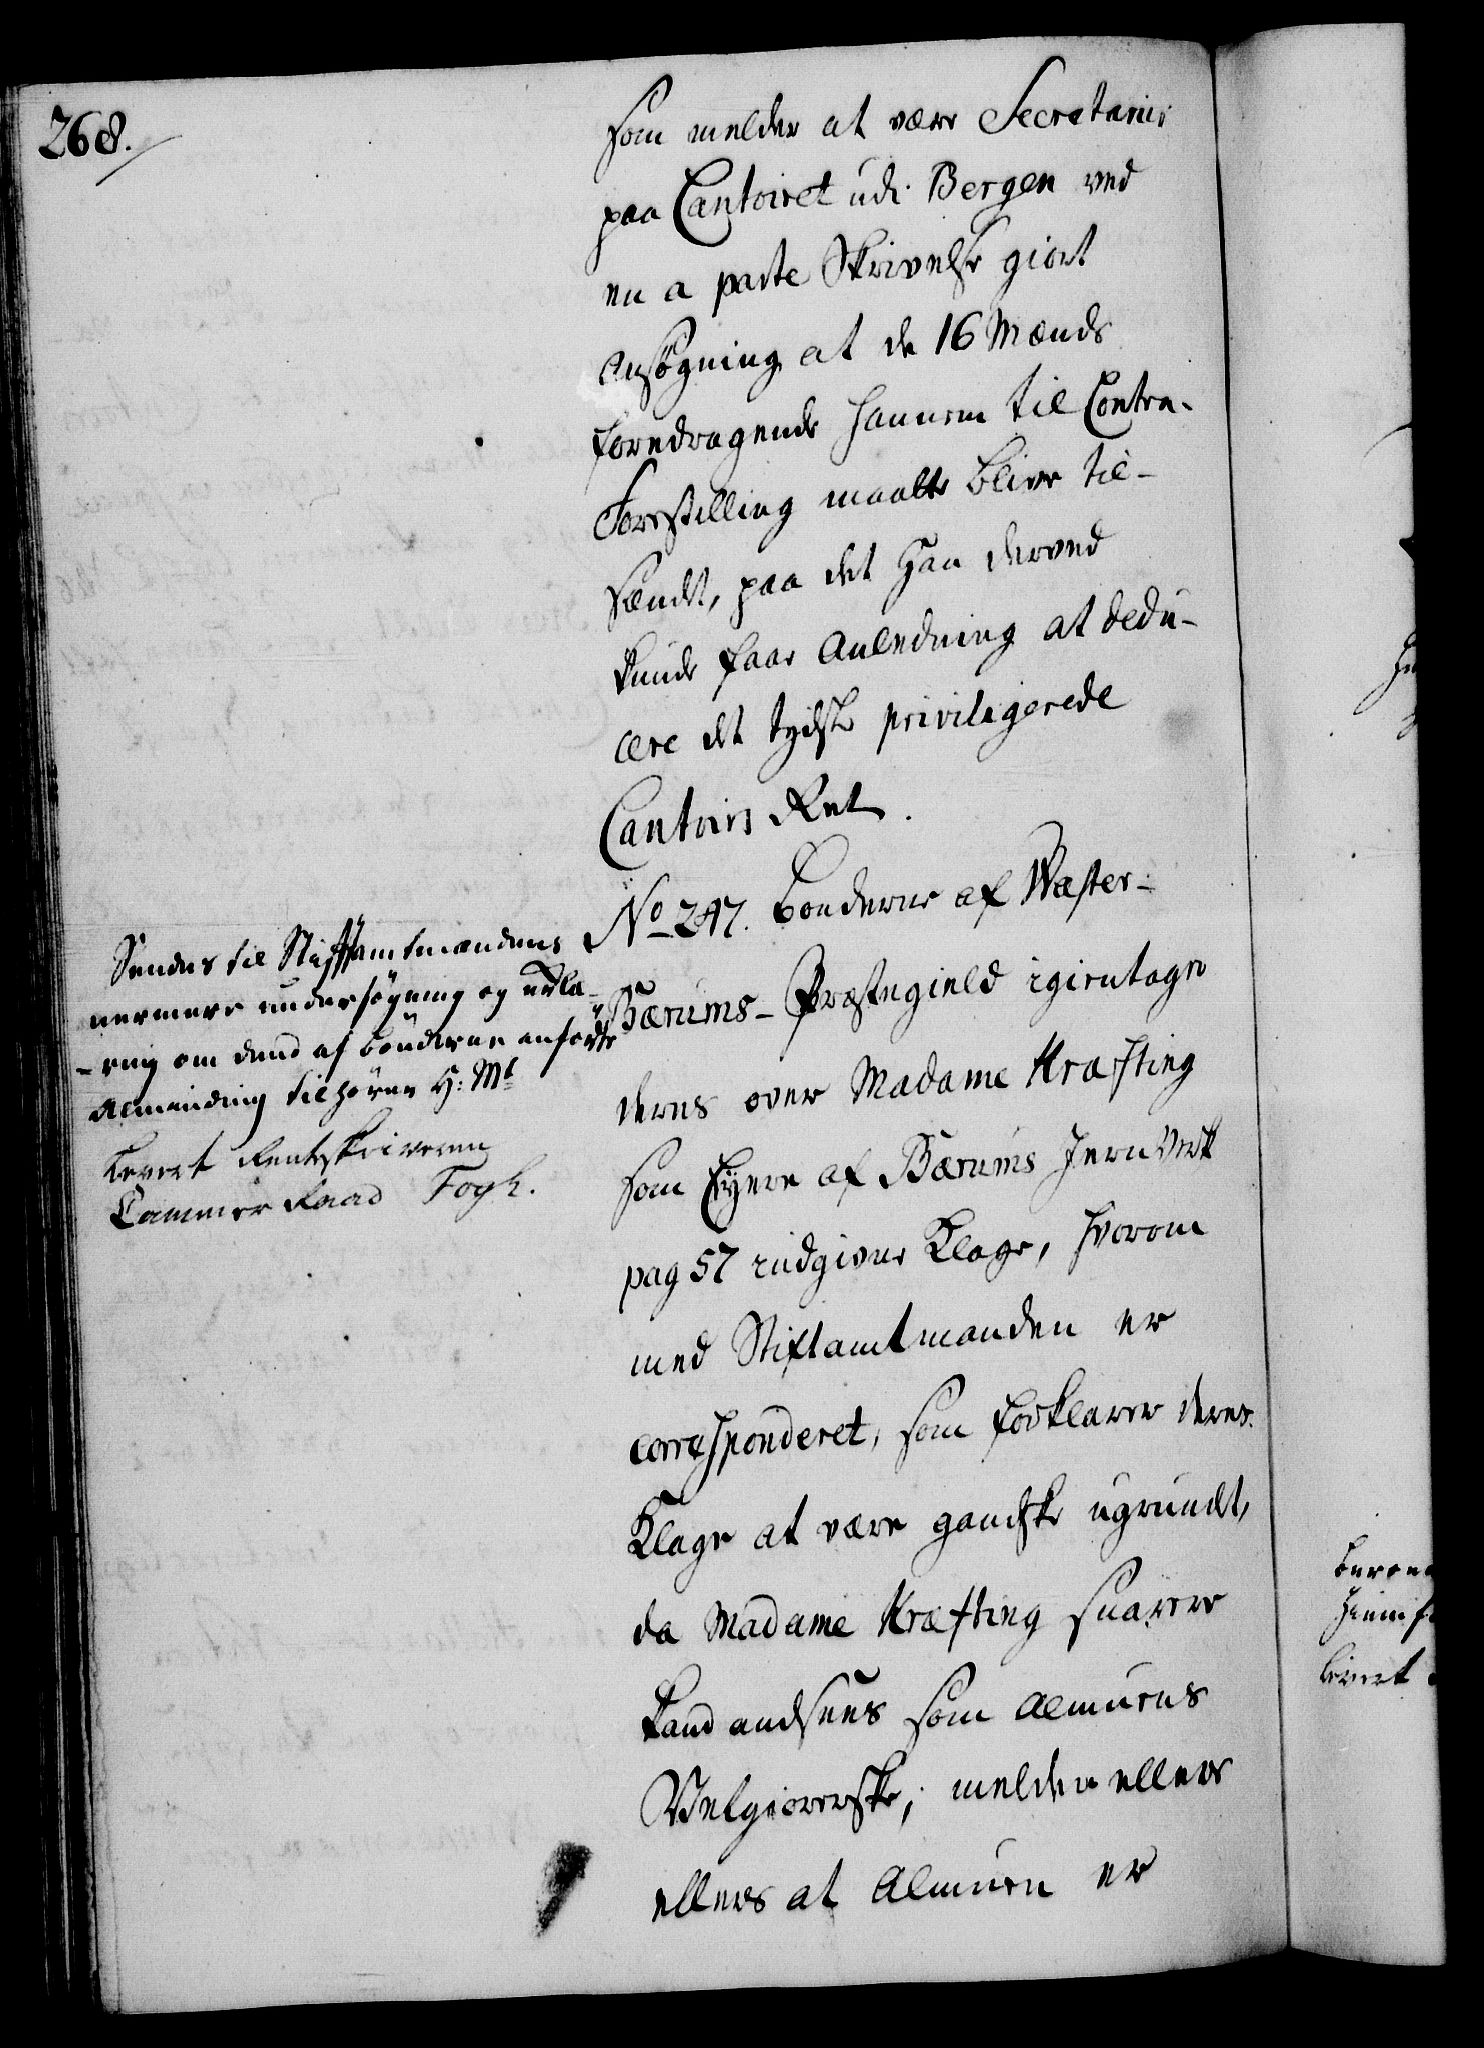 268.
som melder at være Secretarius
paa Cantoiret udi Bergen ved
en a parte Skrivelse giort
Ansøgning at de 16 Mænds
foredragende hannem til Contra-
Forestilling maatte blive til-
sendt, paa det han derved
kunde faae Anledning at dedu-
cere det tydske privilegerede
Cantoirs Ret.
No 247. Bønderne af Wæster-
Bærums-Præstegield igientager
deres over Madame Kræfting
som Eyere af Bærums Jernverk
pag 57 indgivne Klage, hvorom
med Stiftamtmanden er
correspônderet, som forklarer deres
Klage at være gandske ugrundt,
da Madame Kræfting snarere
kand andsees som Almuens
Velgiørerske; melder ellers
ellers at Almuen er
Sendes til Stiftamtmandens
nermere undersøgning og erklæ-
-ring om dend af bønderne anførte
Alminding tilhører H: Mt
Levert Renteskriveren
Cammer Raad Fogh.
levert